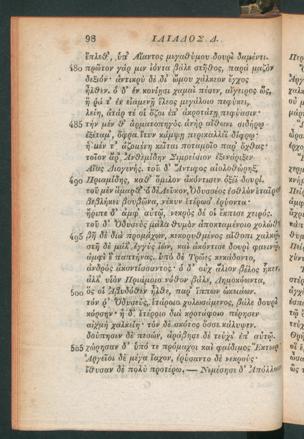 98 ΙΛΙΑΔΟΣ Δ.
ἔπλεθ᾽, ὑπ᾽ Αἴαντος μεγαθύμου δουρὶ δαμέντι.
480 πρῶτον γάρ μιν ἰόντα βάλε στῆθος, παρὰ μαζὸν
δεξιόν· ἀντικρὺ δὲ δι᾽ ὤμου χάλκεον ἔγχος
ἦλθεν. ὁ δ᾽ ἐν κονίῃσι χαμαὶ πέσεν, αἴγειρος ὣς,
ἥ ῥά τ᾽ ἐν εἱαμενῇ ἕλεος μεγάλοιο πεφύκει,
λείη, ἀτάρ τέ οἱ ὄζοι ἐπ᾽ ἀκροτάτῃ πεφύασιν·
485 τὴν μέν θ᾽ ἁρματοπηγὸς ἀνὴρ αἴθωνι σιδήρῳ
ἐξέταμ᾽, ὄφρα ἴτυν κάμψῃ περικαλλέϊ δίφρῳ·
ἡ μέν τ᾽ ἀζομένη κεῖται ποταμοῖο παρ᾽ ὄχθας·
τοῖον ἄρ᾽ Ἀνθεμίδην Σιμοείσιον ἐξενάριξεν
Αἴας Διογενής. τοῦ δ᾽ Ἄντιφος αἰολοθώρηξ
490 Πριαμίδης, καθ᾽ ὅμιλον ἀκόντισεν ὀξέϊ δουρί.
τοῦ μὲν ἅμαρθ᾽· ὁ δὲ Λεῦκον, Ὀδυσσέος ἐσθλὸν ἑταῖρον
βεβλήκει βουβῶνα, νέκυν ἑτέρωσ᾽ ἐρύοντα·
ἤριπε δ᾽ ἀμφ᾽ αὐτῷ, νεκρὸς δέ οἱ ἔκπεσε χειρός.
τοῦ δ᾽ Ὀδυσεὺς μάλα θυμὸν ἀποκταμένοιο χολώθη·
495 βῆ δὲ διὰ προμάχων, κεκορυθμένος αἴθοπι χαλκῷ·
στῆ δὲ μάλ᾽ ἐγγὺς ἰών, καὶ ἀκόντισε δουρὶ φαεινῷ,
ἀμφὶ ἓ παπτήνας. ὑπὸ δὲ Τρῶες κεκάδοντο,
ἀνδρὸς ἀκοντίσσαντος· ὁ δ᾽ οὐχ ἅλιον βέλος ἧκεν,
ἀλλ᾽ υἱὸν Πριάμοιο νόθον βάλε, Δημοκόωντα,
500 ὅς οἱ Ἀβυδόθεν ἦλθε, παρ᾽ ἵππων ὠκειάων.
τόν ῥ᾽ Ὀδυσεὺς, ἑτάροιο χολωσάμενος, βάλε δουρὶ
κόρσην· ἡ δ᾽ ἑτέροιο διὰ κροτάφοιο πέρησεν
αἰχμὴ χαλκείη· τὸν δὲ σκότος ὄσσε κάλυψεν.
δούπησεν δὲ πεσὼν, ἀράβησε δὲ τεύχε᾽ ἐπ᾽ αὐτῷ.
505 χώρησαν δ᾽ ὑπό τε πρόμαχοι καὶ φαίδιμος Ἕκτωρ·
Ἀργεῖοι δὲ μέγα ἴαχον, ἐρύσαντο δὲ νεκροὺς·
ἴθυσαν δὲ πολὺ προτέρω.—Νεμέσησε δ᾽ Ἀπόλλων